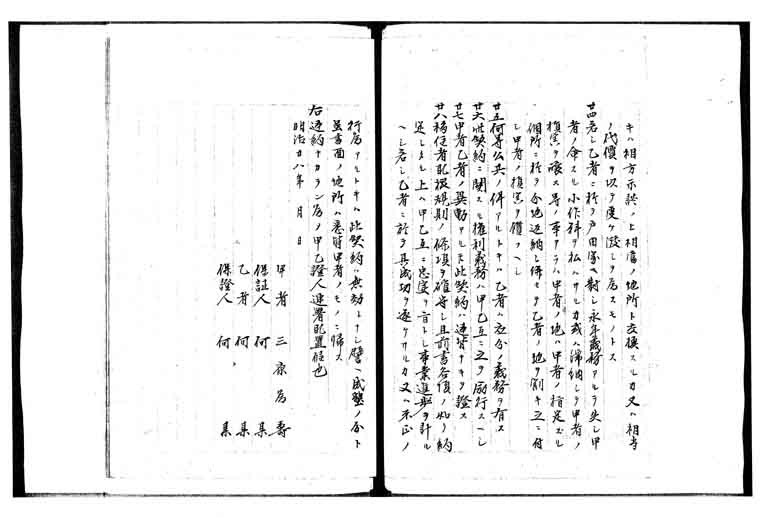 キハ相方示談ノ上相當ノ地所ト交換スルカ又ハ相当
ノ代價ヲ以テ受ケ渡シヲ為スモノトス
廿四若シ乙者ニ於テ戸田家ニ對シ永年義務アルヲ失シ甲
者ノ命スル小作料ヲ払ハサルカ或ハ滞納シテ甲者ノ
損害ヲ醸ス等ノ事アラハ甲者ノ地ハ甲者ノ指定スル
個所ニ於テ分地返納シ併セテ乙者ノ地ヲ割キ之ニ付
シ甲者ノ損害ヲ償フヘシ
廿五何等公共ノ件アルトキハ乙者ハ応分ノ義務ヲ有ス
廿六此契約ニ関スル権利義務ハ甲乙互ニ之ヲ励行スヘシ
廿七甲者乙者ノ異動アルモ此契約ハ違背ナキヲ證ス
廿八移住者取扱規則ノ條項ヲ確守シ且前書各項ノ如ク約
定シタル上ハ甲乙互ニ忠実ヲ旨トシ事業進歩ヲ計ル
ヘシ若シ乙者ニ於テ其成功ヲ遂ケサルカ又ハ不正ノ
行為アルトキハ此契約ハ無効トナシ譬ヘ成墾ノ分ト
虽書面ノ地所ハ悉皆甲者ノモノニ帰ス
右違約ナカラン為メ甲乙證人連署致置候也
明治廿八年 月 日
甲者 三 為壽
保証人 何 某
乙者 何 某
保證人 何 某